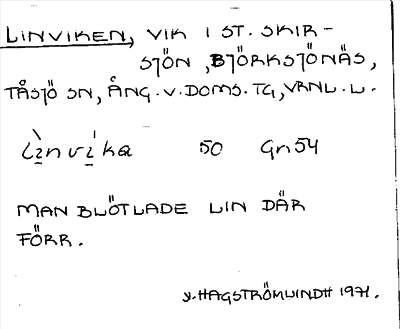 LINVIKEN, VIK I ST. SKIR-
SJÖN, BJÖRKSJÖNÄS,
TÅSJÖ SN, ÅNG. V. DOMS. TG, VRNL. L.
Lìnvíka 50 Gn54
MAN BLÖTLADE LIN DÄR
FÖRR.
Y. HAGSTRÖMLINDH 1971.